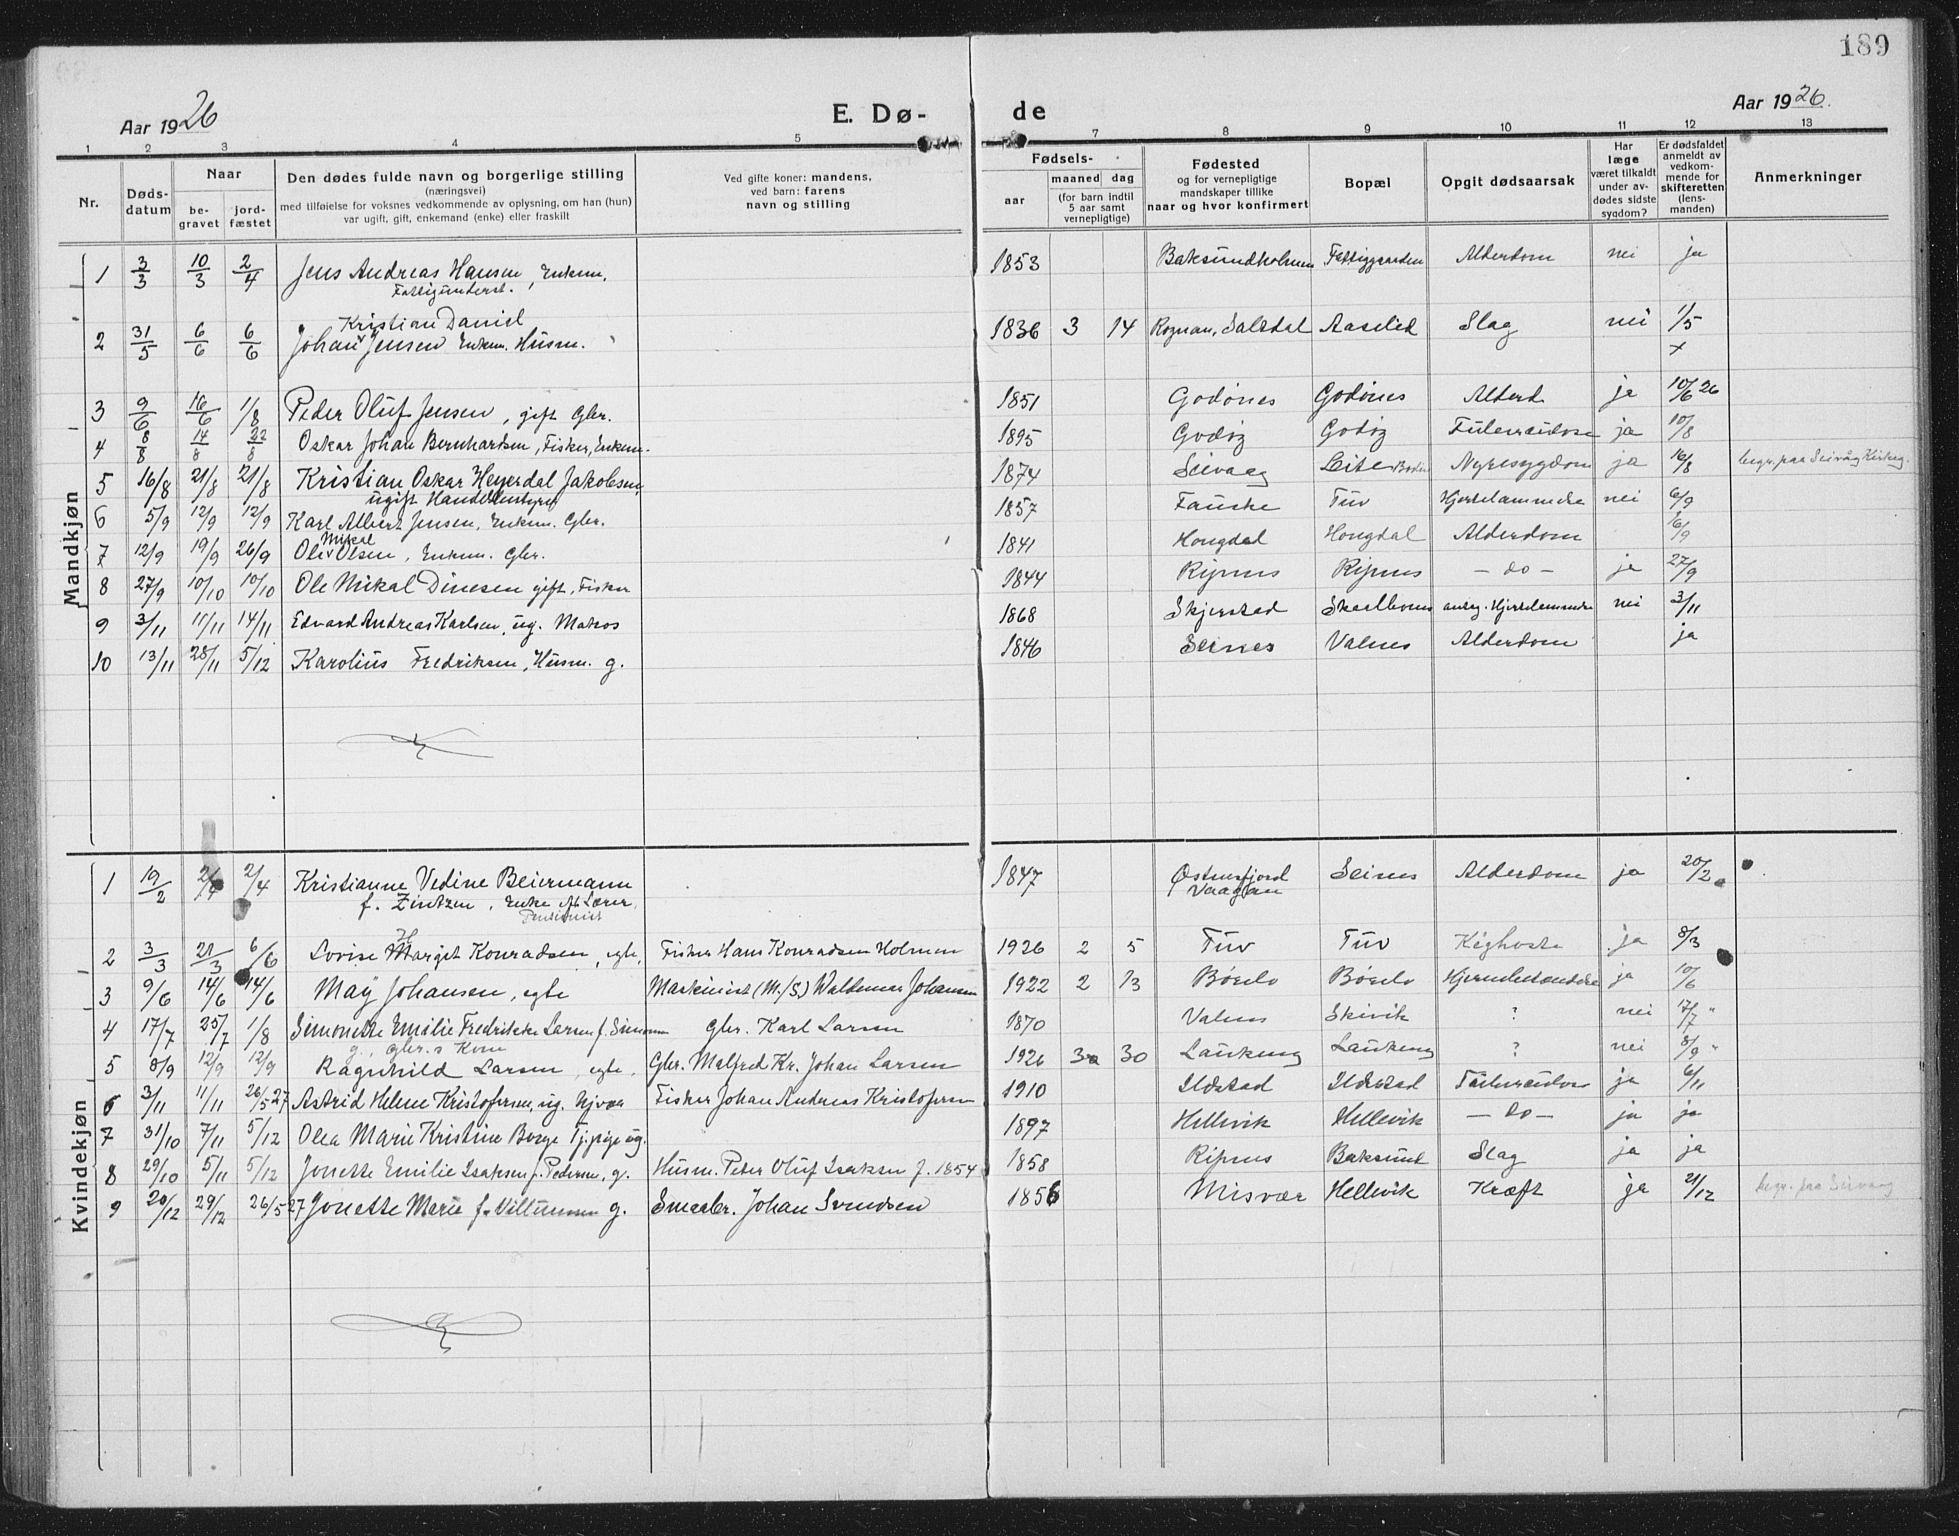 189
Aar 1926
E. Dø-
de
Aar 1926.
1 2 3 4 5 7 8 9 10 11 12 13
Nr.
Døds-
datum
Naar
be-
gravet
jord-
fæstet
Den dødes fulde navn og borgerlige stilling
(næringsvei)
med tilføielse for voksnes vedkommende av oplysning, om han (hun)
var ugift, gift, enkemand (enke) eller fraskilt
Ved gifte koner: mandens,
ved barn: farens
navn og stilling
Fødsels-
aar
maaned dag
(for barn indtil
5 aar samt
vernepligtige)
Fødested
og for vernepligtige
mandskaper tillike
naar og hvor konfirmert
Bopæl
Opgit dødsaarsak
Har
læge
været tilkaldt
under av-
dødes sidste
sygdom?
Er dødsfaldet
anmeldt av
vedkom-
mende for
skifteretten
(lens-
manden)
Anmerkninger
Mandkjøn
1 3/3 10/3 2/4 Jens Andreas Hansen, Enkem. 1853 Baksundholmen Fattiggaarden Alderdom nei ja
Fattigunderst.
Kristian Daniel
2 31/5 6/6 6/6 Johan Jensen Enkem. Husm. 1836 3 14 Rognan, Saltdal Aaselid Slag nei 1/5
x
3 9/6 16/6 1/8 Peder Oluf Jensen, gift Gbr. 1851 Godönes Godönes Alderd ja 10/6 26
4 8/8 14/8 22/8 Oskar Johan Bernhardsen, Fisker, Enkem. 1895 Godöy Godöy ja 10/8
5 16/8 21/8 21/8 Kristian Oskar Heyerdal Jakobsen, 1874 Seivaag Leite Bodin Nyresygdom ja 16/8 begr. paa Seivåg Kirkeg.
ugift Handelsbestyrer
6 5/9 12/9 12/9 Karl Albert Jensen, Enkem. Gbr. 1857 Fauske Tuv Hjertelammelse nei 6/9
Mikal
7 12/9 19/9 26/9 Ole Olsen, Enkem. Gbr. 1841 Hongdal Hongdal Alderdom 16/9
8 27/9 10/10 10/10 Ole Mikal Dinesen gift, Fisker 1844 Ripnes Ripnes — do — ja 27/9
9 3/11 11/11 14/11 Edvard Andreas Karlsen, ug. Matros 1868 Skjerstad antag. Hjertelammelse nei 3/11
10 13/11 28/11 5/12 Karolius Fredriksen, Husm. g. 1846 Seines Valnes Alderdom ja
Kvindekjøn
1 19/2 2/4 2/4 Kristianne Vedine Beiermann 1847 Østnesfjord Seines Alderdom ja 20/2
f. Zintzen, Enke aft. Lærer, Vaagan
Pensionist
2 3/3 21/3 6/6 Lovise H Marget Konradsen, egte, Fisker Hans Konradsen Holmen 1926 2 5 Tuv Tuv Kighoste ja 8/3
3 9/6 14/6 14/6 May Johansen, egte Maskinist (M./S.) Waldemar Johansen 1922 2 13 Börelv Börelv Hjernebetændelse ja 10/6
4 17/7 25/7 1/8 Simonette Emilie Fredrikke Larsen f. Simonsen Gbr. Karl Larsen 1870 Valnes Skivik ? nei 17/7 "
g., Gbr.s Kone
5 8/9 12/9 12/9 Ragnhild Larsen, egte, Gbr. Malfred Kr. Johan Larsen 1926 3 30 Laukeng Laukeng ? nei 8/9 "
6 3/11 11/11 26/5 27 Astrid Helene Kristofersen, ug. hjvær Fisker Johan Andreas Kristofersen 1910 Ildstad Ildstad ja 6/11
7 31/10 7/11 5/12 Olea Marie Kristine Borge Tj.pige ug. 1897 Hellevik Hellevik — do — ja ja
8 29/10 5/11 5/12 Jonette Emilie Isaksen f. Pedersen, g. Husm. Peter Oluf Isaksen f. 1854 1858 Ripnes Baksund Slag ja ja
9 20/12 29/12 26/5 27 Jonette Marie f. Villumsen g. Smaabr. Johan Svendsen 1856 Misvær Hellevik Kræft ja 21/12 begr. paa Seivaag